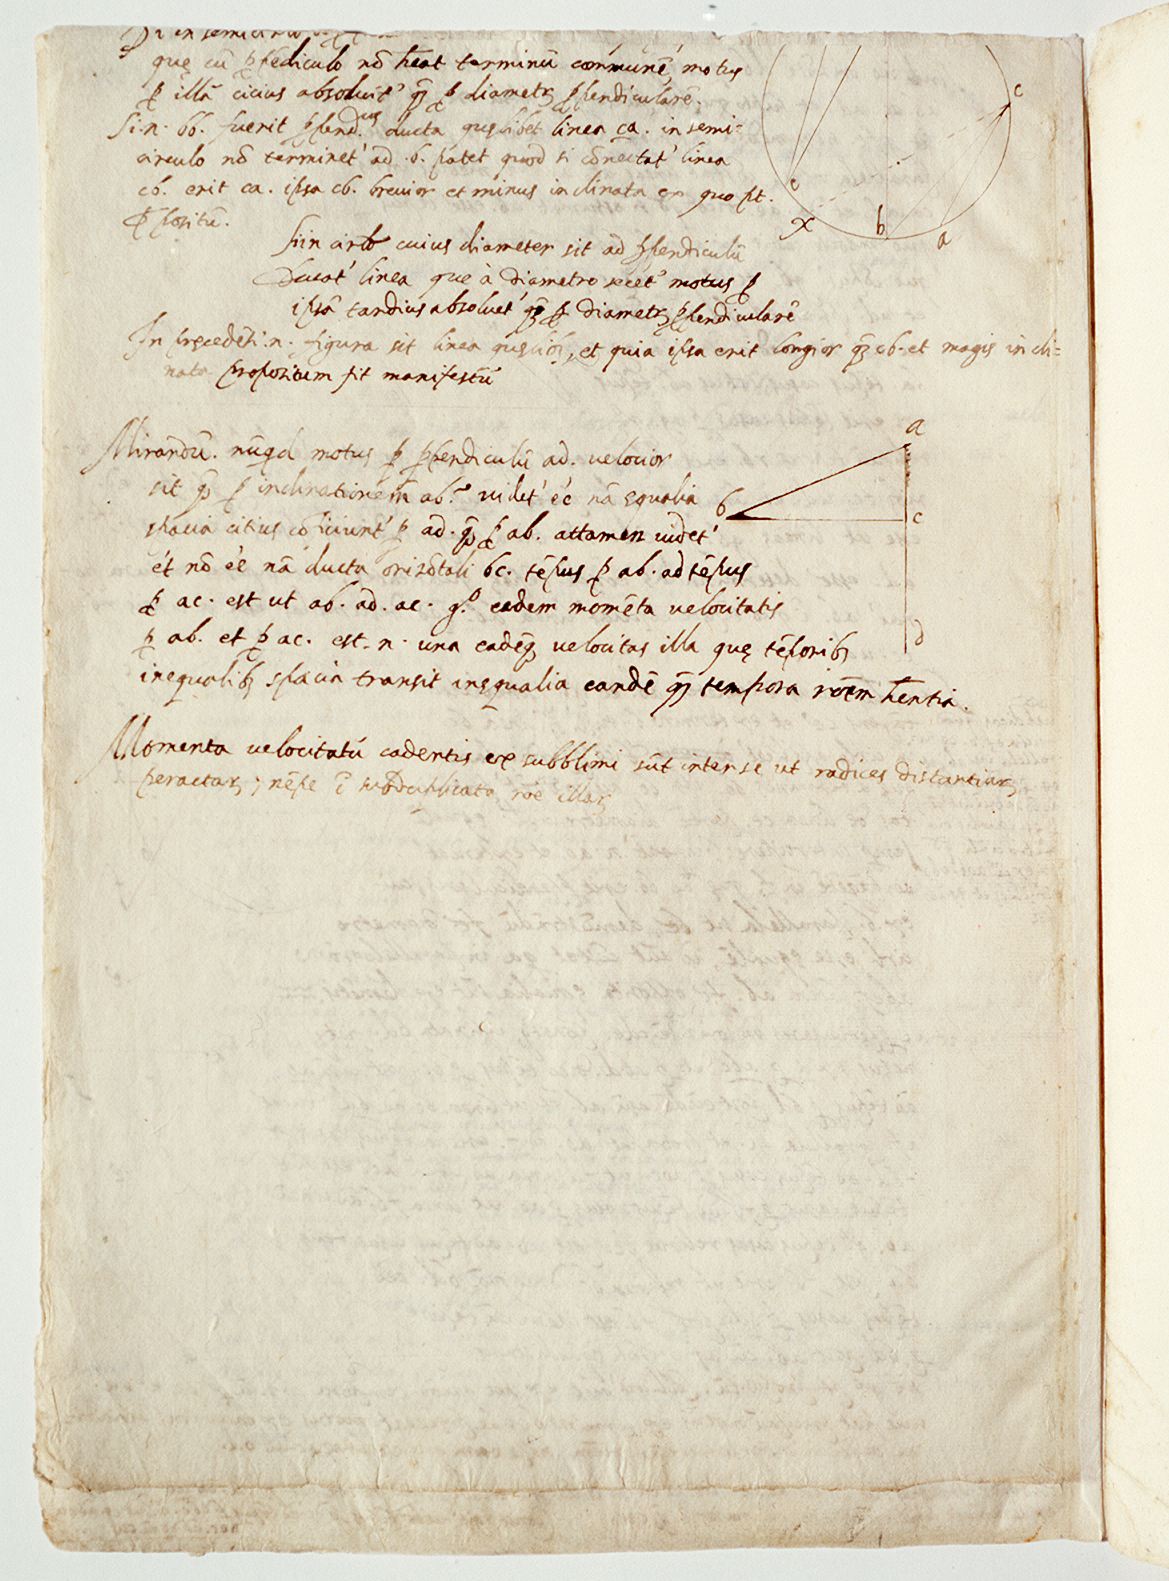 quę cū ꝑpēdiculo nō h̄eat terminū commune, motus
ꝑ illā citius absoluit' qꝫ ꝑ diametꝝ ꝑpendicularē.
Si .n. bb. fuerit ꝑpend.us ducta quęlibet linea ca. in semi-
circulo nō terminet' ad .b. patet quod si cōnectat' linea
cb. erit ca. ipsa cb. brevior et minus inclinata ex quo pt.
ꝓpositū.
Si in circlo cuius diameter sit ad ꝑpendiculū
ducat' linea que à diametro secet' motus ꝑ
ipsā tardius absoluet' qꝫ ꝑ diametꝝ ꝑpendicularē
In pręcedēti .n. figura sit linea et quia ipsa erit longior qꝫ cb. et magis incli-
nata propositum fit manifestū
Mirandū. nūqd motus ꝑ ꝑpendiculū ad. velocior
sit qꝫ ꝑ inclinationēm ab.? videt' éé nā equalia
spacia citius cōficiunt' ꝑ ad. qꝫ ꝑ ab. attamen videt'
et nō éé nā ducta orizōtali bc. tēpus ꝑ ab. ad tēpus
ꝑ ac. est ut ab. ad. ac. g.o eadem momēta velocitatis
ꝑ ab. et ꝑ ac. est .n. una eadēqꝫ velocitas illa quę tēporibꝫ
inequalibꝫ spacia transit inęqualia eandē qꝫ tempora roēm h̄entia.
Momenta velocitatū cadentis ex subblimi sūt inter se ut radices distantiaꝝ
peractaꝝ; nēpe ī subduplicata roē illaꝝ
c
e
x
b
a
a
b
c
d